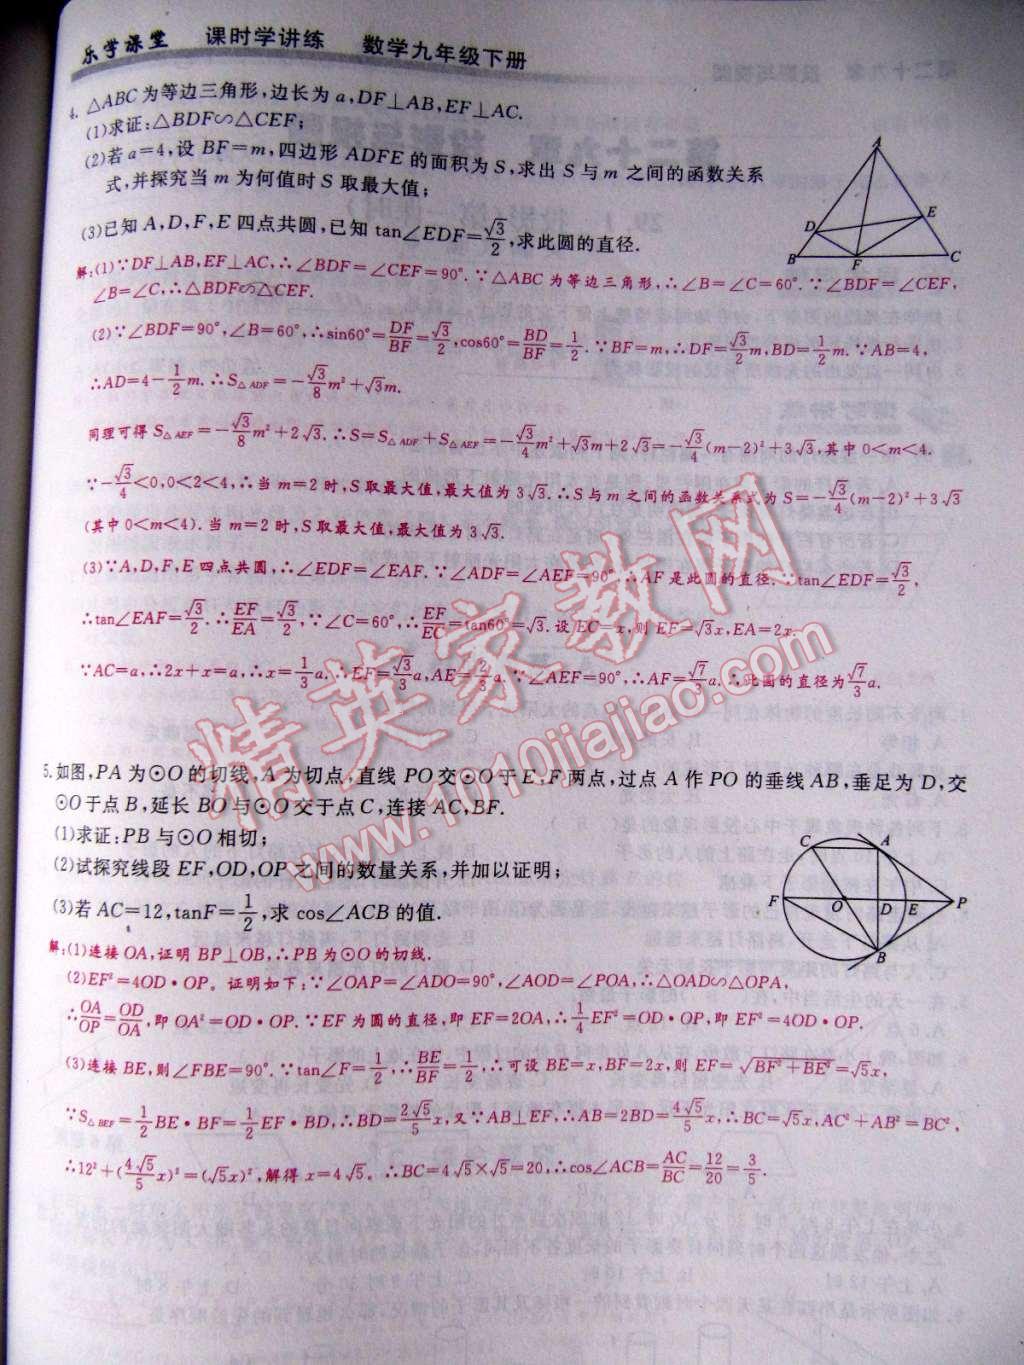 乐学课堂 课时学讲练 数学九年级下册
4. △ABC为等边三角形,边长为a,DF⊥AB,EF⊥AC.
(1)求证:△BDF∽△CEF;
(2)若a=4,设BF=m,四边形ADFE的面积为S,求出S与m之间的函数关系
式,并探究当m为何值时S取最大值;
(3)已知A,D,F,E四点共圆,已知tan∠EDF=√3/2,求此圆的直径.
A
D
E
B
F
C
解:(1)∵DF⊥AB,EF⊥AC,∴∠BDF=∠CEF=90°.∵△ABC为等边三角形,∴∠B=∠C=60°.∵∠BDF=∠CEF,
∠B=∠C,∴△BDF∽△CEF.
(2)∵∠BDF=90°,∠B=60°,∴sin60°=DF/BF=√3/2,cos60°=BD/BF=1/2.∵BF=m,∴DF=√3/2m,BD=1/2m.∵AB=4,
∴AD=4-1/2m.∴S△ADF=-√3/8m²+√3m.
同理可得S△AEF=-√3/8m²+2√3.∴S=S△ADF+S△AEF=-√3/4m²+√3m+2√3=-√3/4(m-2)²+3√3,其中0<m<4.
∵-√3/4<0,0<2<4,∴当m=2时,S取最大值,最大值为3√3.∴S与m之间的函数关系式为S=-√3/4(m-2)²+3√3
(其中0<m<4).当m=2时,S取最大值,最大值为3√3.
(3)∵A,D,F,E四点共圆,∴∠EDF=∠EAF.∵∠ADF=∠AEF=90°,∴AF是此圆的直径.∵tan∠EDF=√3/2,
∴tan∠EAF=√3/2.∴EF/EA=√3/2,∵∠C=60°,∴EF/EC=tan60°=√3.设EC=x,则EF=√3x,EA=2x.
∵AC=a,∴2x+x=a,∴x=1/3a.∴EF=√3/3a,AE=2/3a.∵∠AEF=90°,∴AF=√7/3a.∴此圆的直径为√7/3a.
5.如图,PA为⊙O的切线,A为切点,直线PO交⊙O于E,F两点,过点A作PO的垂线AB,垂足为D,交
⊙O于点B,延长BO与⊙O交于点C,连接AC,BF.
(1)求证:PB与⊙O相切;
(2)试探究线段EF,OD,OP之间的数量关系,并加以证明;
(3)若AC=12,tanF=1/2,求cos∠ACB的值.
C
A
F
O
D
E
P
B
解:(1)连接OA,证明BP⊥OB,∴PB为⊙O的切线.
(2)EF²=4OD·OP.证明如下:∵∠OAP=∠ADO=90°,∠AOD=∠POA,∴△OAD∽△OPA,
∴OA/OP=OD/OA,即OA²=OD·OP.∵EF为圆的直径,即EF=2OA,∴1/4EF²=OD·OP,即EF²=4OD·OP.
(3)连接BE,则∠FBE=90°.∵tan∠F=1/2,∴BE/BF=1/2,∴可设BE=x,BF=2x,则EF=√(BF²+BE²)=√5x,
∵S△BEF=1/2BE·BF=1/2EF·BD,∴BD=2√5/5x,又∵AB⊥EF,∴AB=2BD=4√5/5x,∴BC=√5x,AC²+AB²=BC²,
∴12²+(4√5/5x)²=(√5x)²,解得x=4√5.∴BC=4√5×√5=20,∴cos∠ACB=AC/BC=12/20=3/5.
精英家教网
www.1010jiajiao.com